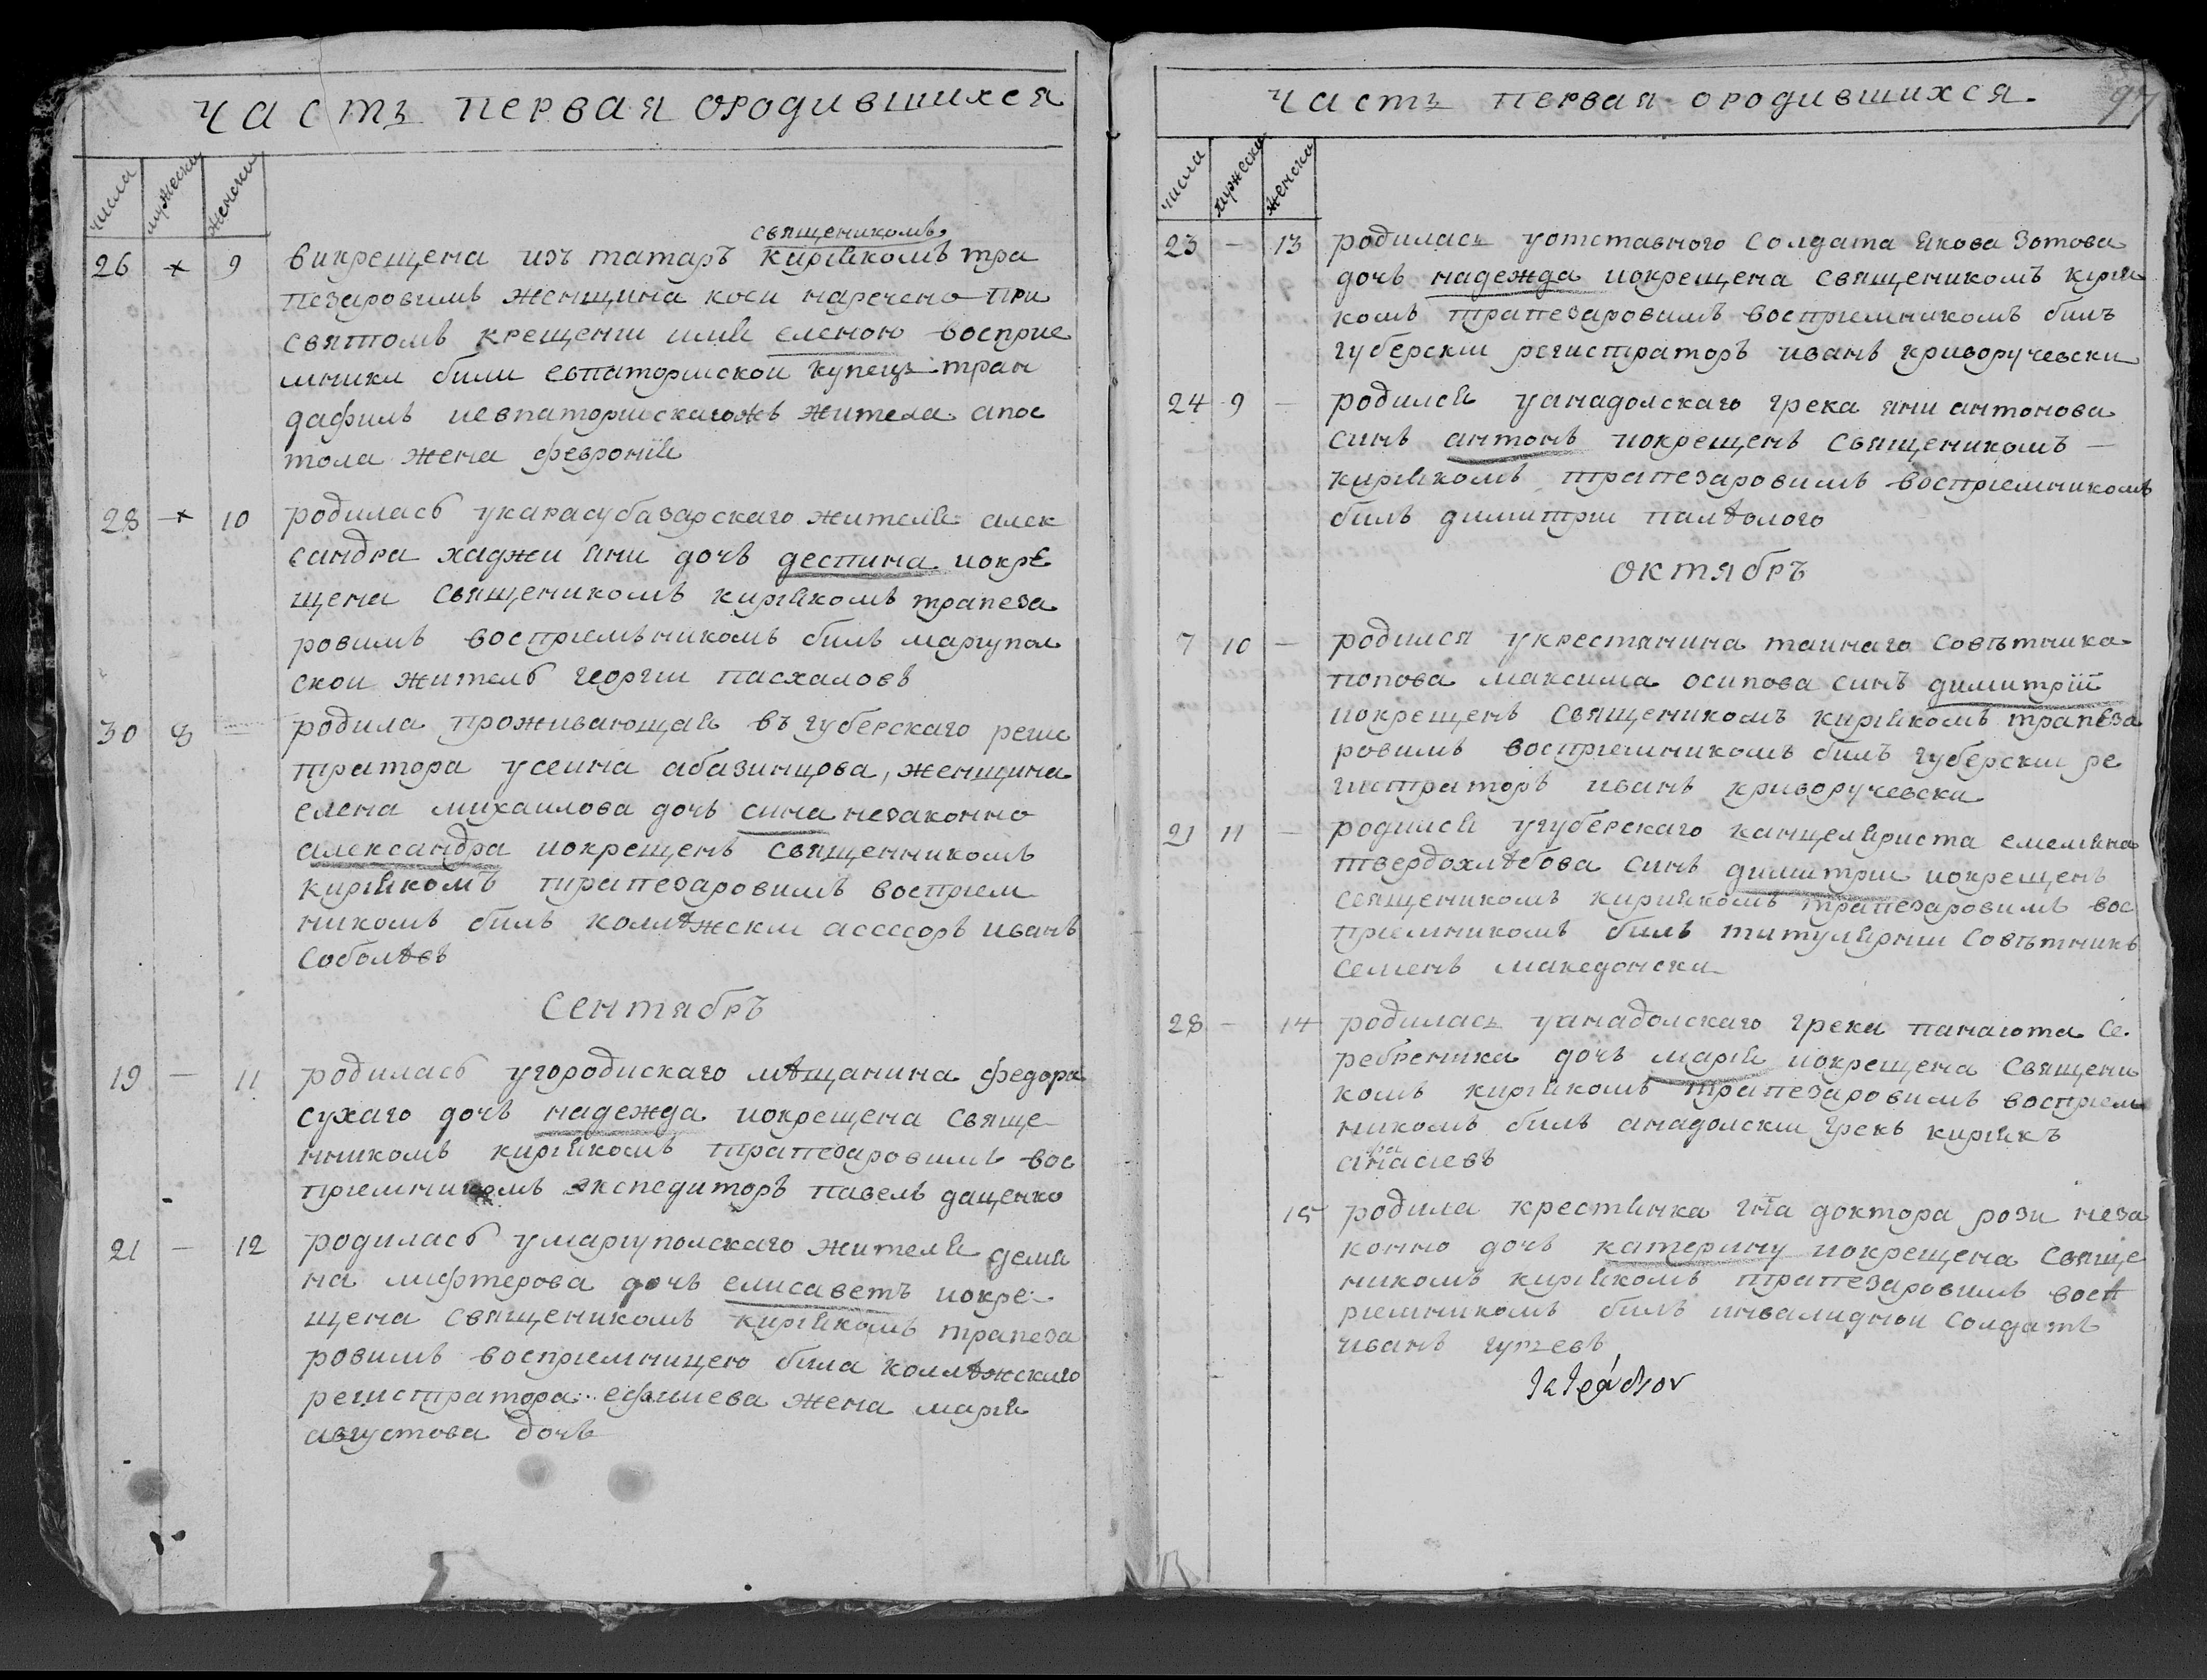 часть первая ородившихся
числа мужески женски
священикомъ
26 × 9 викрещена изъ татаръ кирїякомъ тра
пезаровимъ женщина коси наречено при
святомъ крещении имя еленою восприе
мники били евпаторискои купецъ тран
дафилъ иевпаторискагожъ жителя апос
тола жена февронїя
28 × 10 родилась укарасубазарскаго жителя алек
сандра хаджи яни дочъ деспина иокре
щена священикомъ кирїякомъ трапеза
ровимъ восприемъникомъ билъ мариупол
скои житель георгии пасхаловъ
30 8 — родила проживающая въ губерскаго регис
тратора усеина абазинцова, женщина
елена михаилова дочъ сина незаконно
александра иокрещенъ священникомъ
кирїякомъ трапезаровимъ восприем
никомъ билъ колѣжски асессоръ иванъ
соболѣвъ
Сентябръ
19 — 11 родилась угородискаго мѣщанина федора
сухаго дочъ надежда иокрещена свяще
нникомъ кирїякомъ трапезаровимъ вос
приемникомъ экспедиторъ павелъ даценко
21 — 12 родилась умариуполскаго жителя демя
на мифтерова дочъ елисаветъ иокре
щена священикомъ кирїякомъ трапеза
ровимъ восприемницею била колѣжскаго
регистратора ефимева жена марїя
августова дочъ
часть первая ородившихся.
97
числа мужески женски
23 — 13 родиласъ уотставного солдата якова зотова
дочъ надежда иокрещена священикомъ кирїя
комъ трапезаровимъ восприемникомъ билъ
губерскии регистраторъ иванъ криворучевски
24 9 — родился уанадолскаго грека яни антонова
синъ антонъ иокрещенъ священикомъ —
кирїякомъ трапезаровимъ восприемникомъ
билъ димитрии палѣолого
октябръ
7 10 — родился укрестянина таинаго совѣтника
попова максима осипова синъ димитрїй
иокрещенъ священикомъ кирїякомъ трапеза
ровимъ восприемникомъ билъ губерски ре
гистраторъ иванъ криворучевски
21 11 — родился угуберскаго канцеляриста емеляна
твердохлѣбова синъ димитрии иокрещенъ
священикомъ кирїякомъ трапезаровимъ вос
приемникомъ билъ титулярнии совѣтникъ
семенъ македонски
28 — 14 родиласъ уанадолскаго грека панаиота се
ребреника дочъ марїя иокрещена священи
комъ кирїякомъ трапезаровимъ восприем
никомъ билъ анадолскии грекъ кирїякъ
фа
анасиевъ
15 родила крестянка гна доктора рози неза
конно дочъ катерину иокрещена свяще
никомъ кирїякомъ трапезаровимъ восп
риемникомъ билъ инвалиднои солдатъ
иванъ